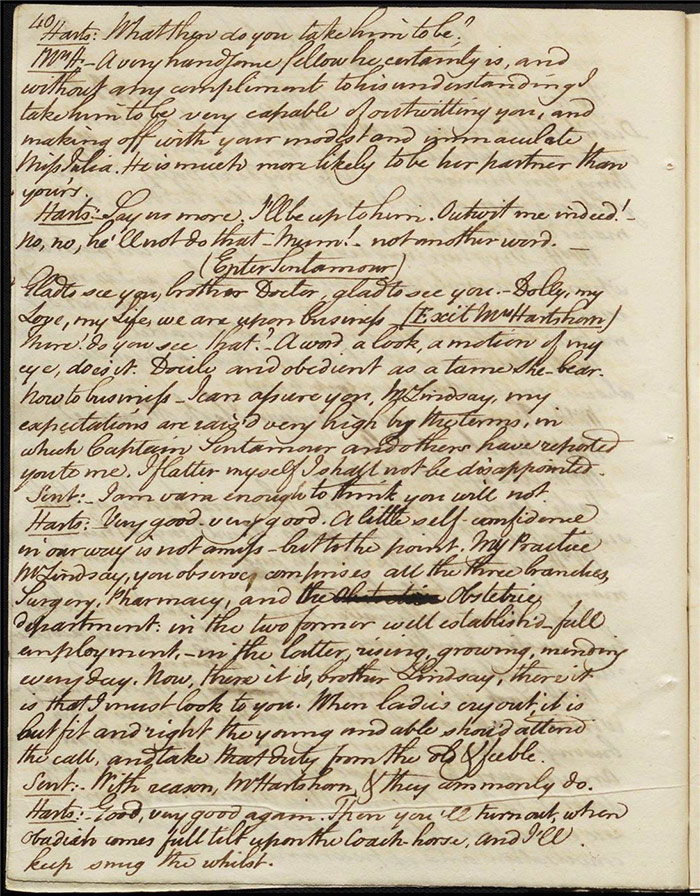 40
Harts: What then do you take him to be?
Mrs H. - A very handsome fellow he certainly is, and
without any compliment to his understanding I
take him to be very capable of outwitting you, and
making off with your modest and immaculate
Miss Julia. He is much more likely to be her partner than
yours.
Harts: - Say no more. I'll be up to him. Outwit me indeed! -
No, no, he'll not do that - Mum! - not another word. -
(Enter Sentamour)
Glad to see you, brother Doctor, glad to see you. - Dolly, my
Love, my Life, we are upon business - (Exit Mrs Hartshorn)
There! do you see that? - A word, a look, a motion of my
eye, does it. Docile and obedient as a tame she-bear.
Now to business - I can assure you, Mr Lindsay, my
expectations are rais'd very high by the terms, in
which Captain Sentamour and others have reported
you to me. I flatter myself I shall not be disappointed -
Sent: - I am vain enough to think you will not.
Harts: Very good - very good. A little self-confidence
in our way is not amiss - but to the point. My Practice
Mr Lindsay, you observe, comprises all the three branches,
Surgery, Pharmacy, and the Obstetric
department: in the two former well establish'd - full
employment, - in the latter, rising, growing, mending
every day. Now, there it is, brother Lindsay, there it
is that I must look to you. When ladies cry out, it is
but fit and right the young and able should attend
the call, and take that duty from the old & feeble.
Sent: - With reason, Mr Hartshorn, & they commonly do.
Harts: - Good, very good again. Then you'll turn out, when
Obadiah comes full tilt upon the Coach-horse, and I'll
keep snug the whilst.